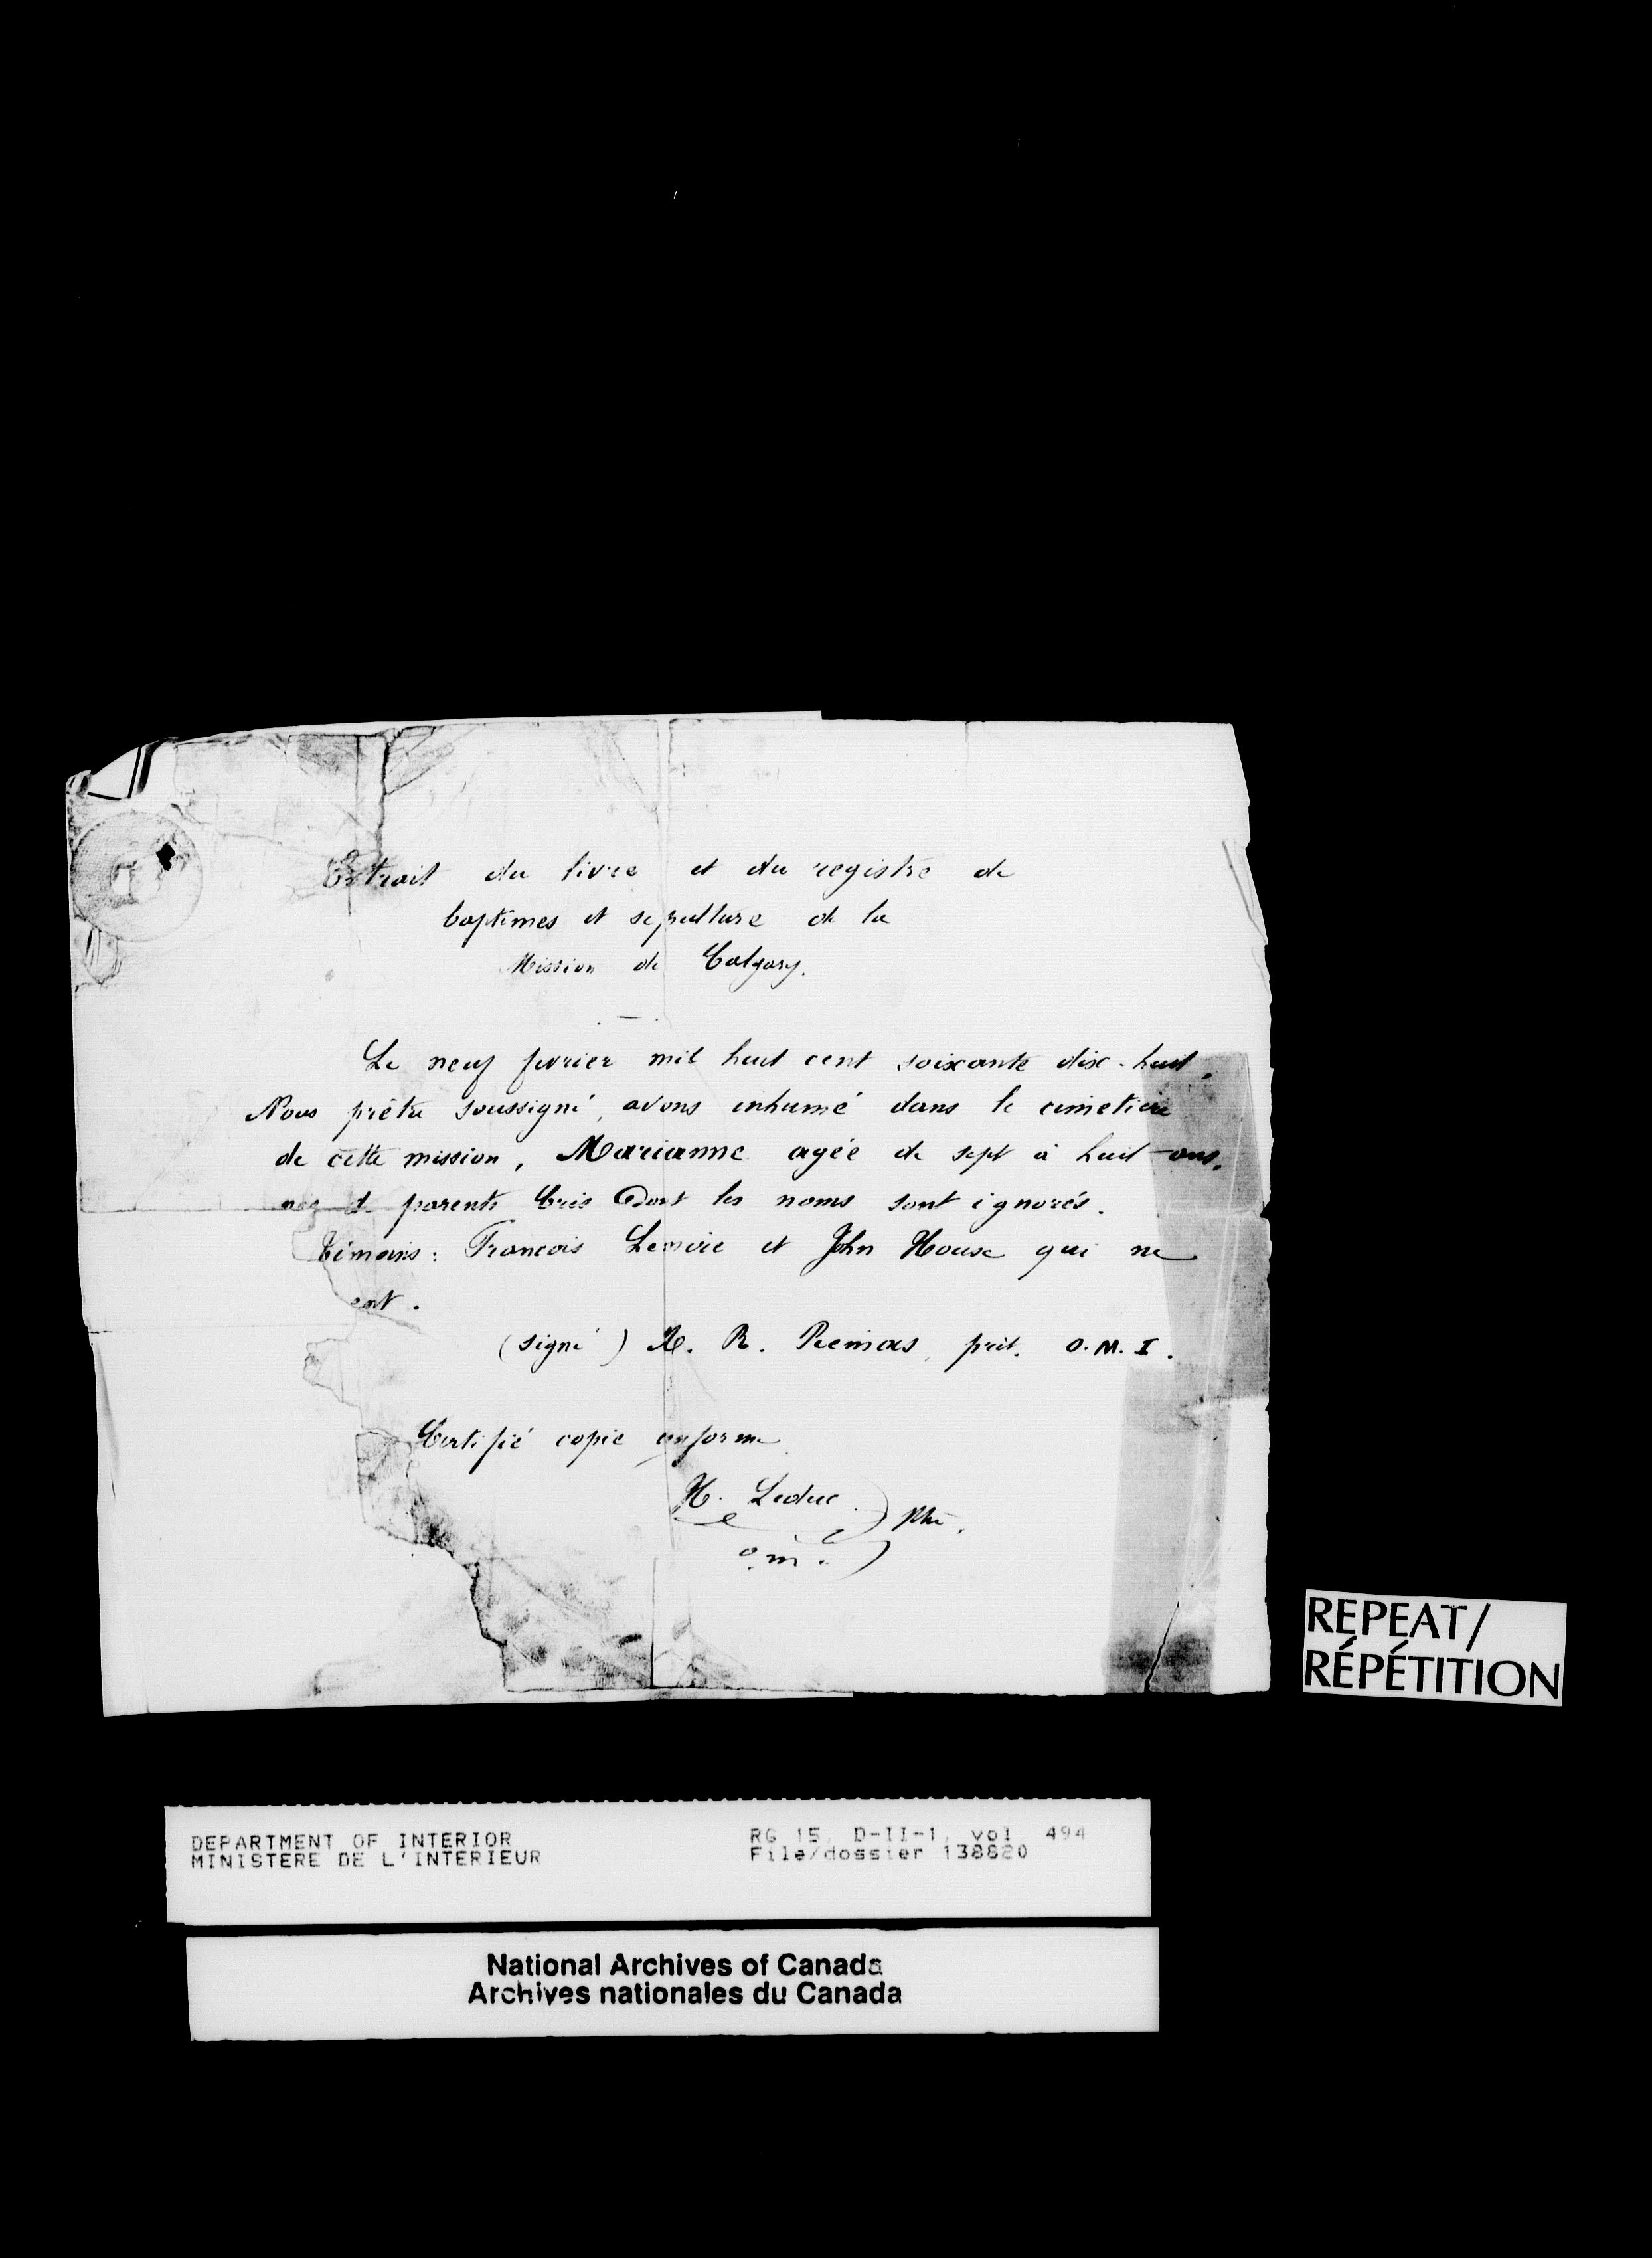 Extrait du livre et du registre de
baptêmes et sépulture de la
Mission de Calgary.
Le neuf fevrier mil huit cent soixante dix-huit,
Nous prêtre soussigné, avons inhumé dans le cimetière
de cette mission, Marianne agée de sept à huit ans,
née de parents Cris dont les noms sont ignorés.
Témoins: Francois Lenoire et John House qui ne
ent.
(signé) R. Remas, prêt. O.M.I.
Certifié copie conforme
H. Leduc ptre.
o.m.i.
REPEAT/
RÉPÉTITION
DEPARTMENT OF INTERIOR RG 15, D-II-1, vol 494
MINISTERE DE L'INTERIEUR File/dossier 138820
National Archives of Canada
Archives nationales du Canada